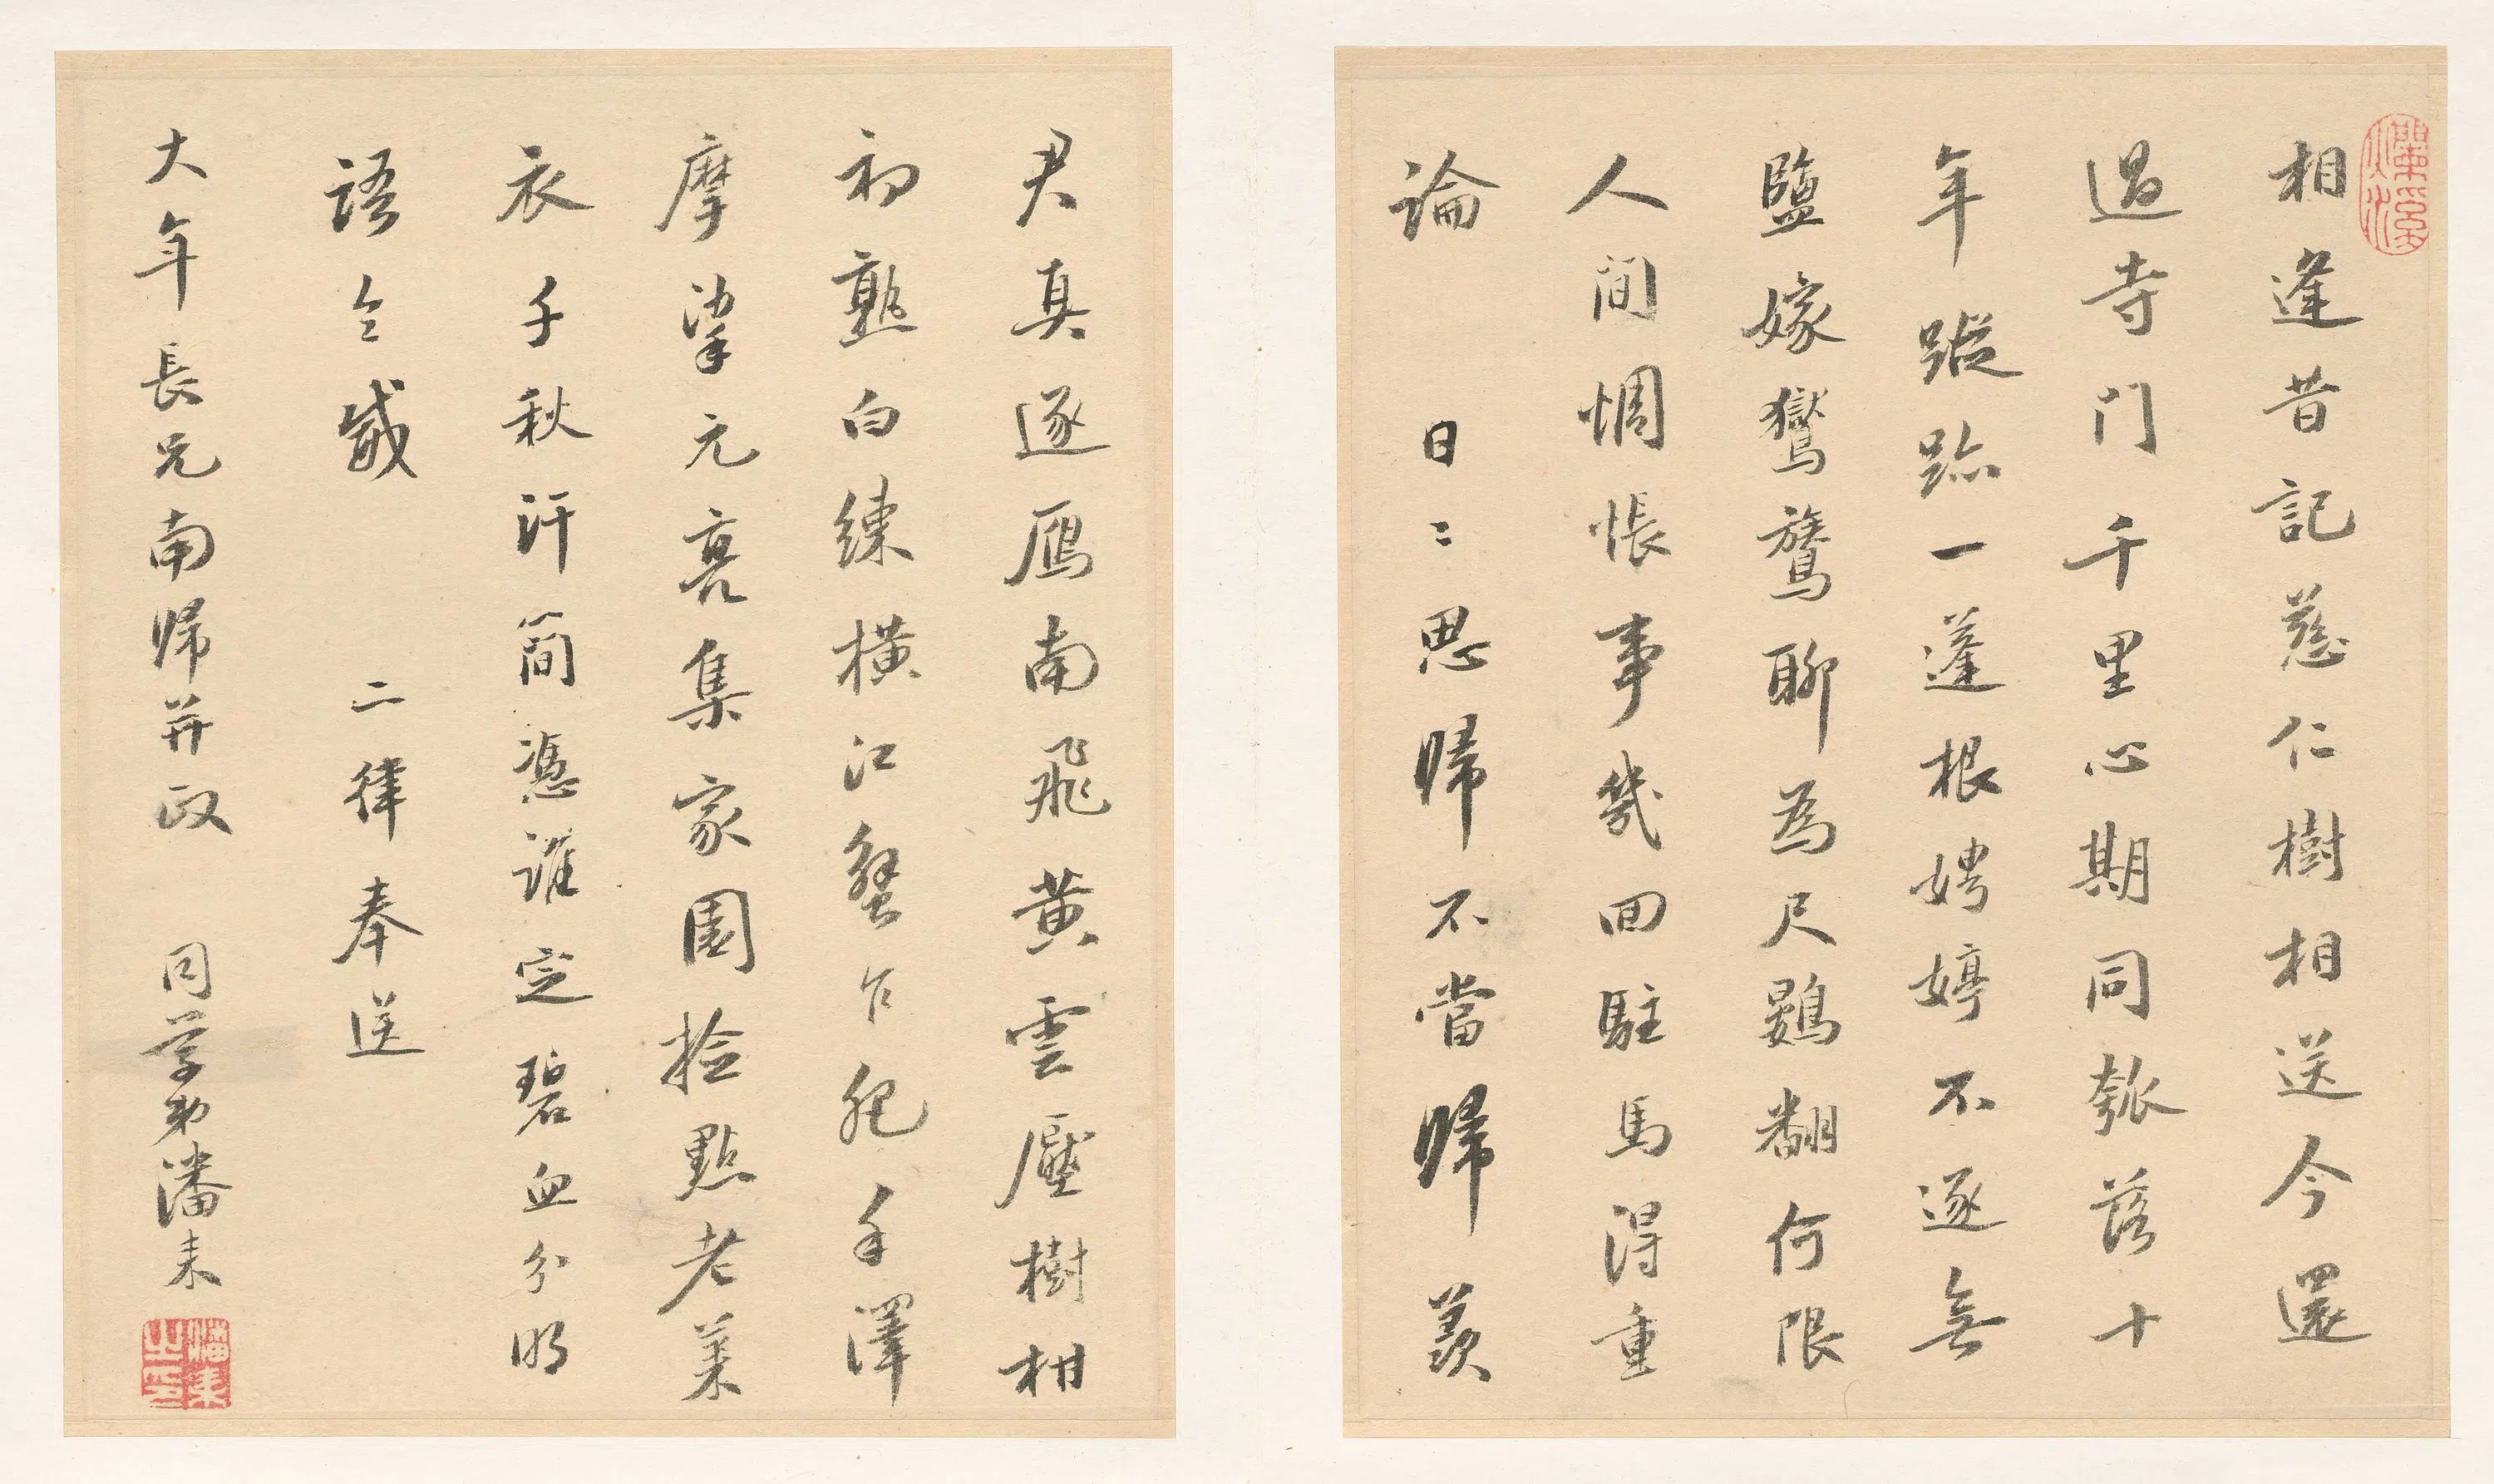 相逢昔記慈仁樹相送今還
過寺门千里心期同瓠落十
年蹤跡一蓬根娉婷不逐無
鹽嫁鸑鷟聊為尺鷃翻何限
人间惆悵事幾回駐馬得重
論 日〻思歸不當歸羡
君真逐鴈南飛黄雲壓樹柑
初熟白練橫江蟹乍肥手澤
摩挲元亮集家園捡點老萊
衣千秋汗简憑誰定碧血分明
語令威 二律奉送
大年長兄南歸并政 同學弟潘耒
潘耒之印